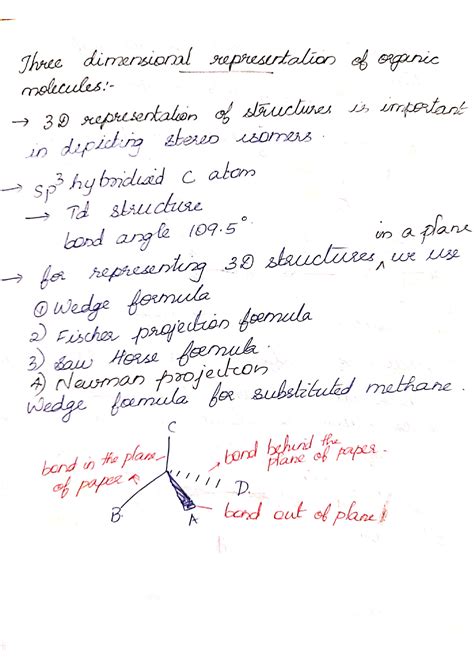 Three dimensional representation of organic
molecules:-
→ 3D representation of structures is important
in depicting stereo isomers.
→ sp³ hybridised C atom
→ Td structure
bond angle 109.5°
in a plane
→ for representing 3D structures, ^ we use
① Wedge formula
2) Fischer projection formula
3) Saw Horse formula.
4) Newman projection
Wedge formula for substituted methane.
C
bond in the plane
of paper
bond behind the
plane of paper.
D.
B.
A
bond out of plane